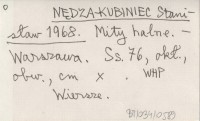 NĘDZA-KUBINIEC Stani-
sław 1968. Mity halne. -
Warszawa. Ss. 76, okł.,
obw., cm x . WHP
Wiersze.